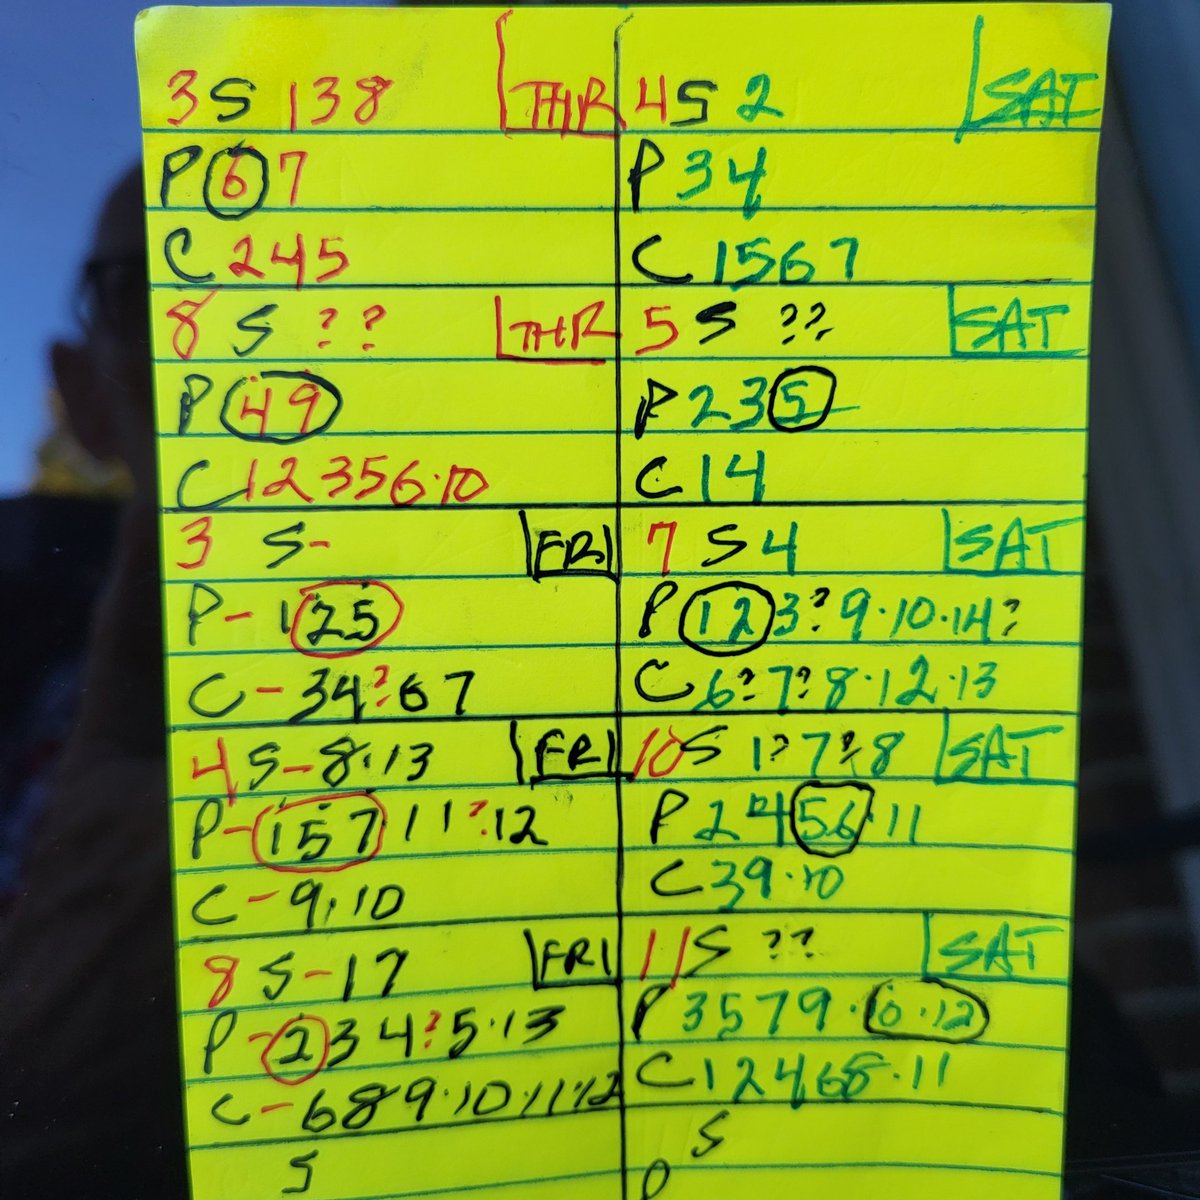 3 S 138 THR
P 6 7
C 245
8 S ?? THR
P 49
C 12356·10
3 S- FRI
P- 125
C- 34?67
4 S-8·13 FRI
P-157 11?·12
C-9·10
8 S-17 FRI
P-234?5·13
C-689·10·11·12
S
4 S 2 SAT
P 34
C 1567
5 S ?? SAT
P 235
C 14
7 S 4 SAT
P 123?9·10·14?
C 6?7?8·12·13
10 S 1?7?8 SAT
P 2456·11
C 39·10
11 S ?? SAT
P 3579·10·12
C 12468·11
S
P